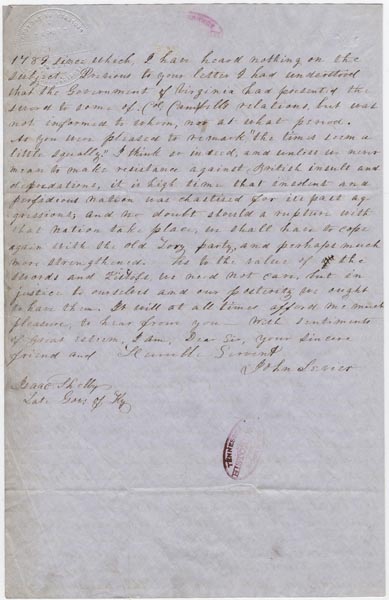 1789 since which, I have heard nothing on the
subject. Previous to your letter I had understood
that the Government of Virginia had presented the
sword to some of Col Campbells relations, but was
not informed to whom, nor at what period.
As you were pleased to remark "the times seem a
little squally" I think so indeed, and unless we never
mean to make resistance against British insults and
depredations, it is high time that insolent and
perfidious nation was chastised for its past ag
gressions, and no doubt should a rupture with
that nation take place, we shall have to cope
again with the old Tory party, and perhaps much
more strengthened. As to the value of the
swords and Pistols, we need not care, but in
justice to ourselves and our posterity we ought
to have them. It will at all times afford me much
pleasure, to hear from you — With sentiments
of great esteem, I am, Dear Sir, your sincere
friend and Humble Servant
John Sevier
Isaac Shelby
Late Govr of Ky
TENNES
HISTORI